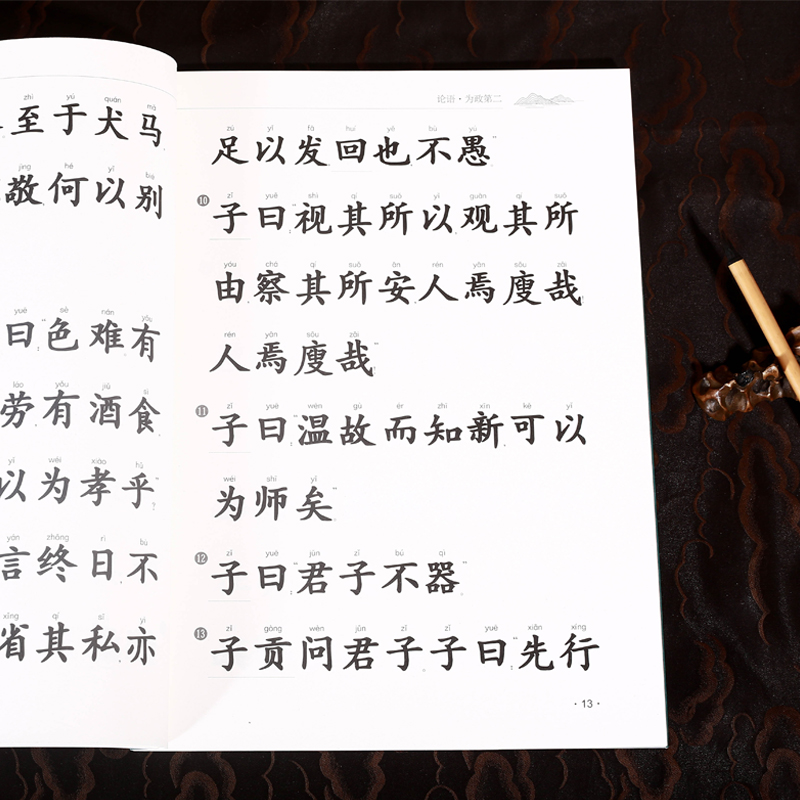 zhì yú quǎn mǎ
至于犬马
jìng hé yǐ bié
敬何以别
yuē sè nán yǒu
曰：“色难。有
láo yǒu jiǔ sì
劳；有酒食
yǐ wéi xiào hū
以为孝乎？”
yán zhōng rì bù
言终日，不
xǐng qí sī yì
省其私，亦
论语·为政第二
zú yǐ fā huí yě bù yú
足以发，回也不愚。”
zǐ yuē shì qí suǒ yǐ guān qí suǒ
10 子曰：“视其所以，观其所
yóu chá qí suǒ ān rén yān sōu zāi
由，察其所安。人焉廋哉？
rén yān sōu zāi
人焉廋哉？”
zǐ yuē wēn gù ér zhī xīn kě yǐ
11 子曰：“温故而知新，可以
wéi shī yǐ
为师矣。”
zǐ yuē jūn zǐ bú qì
12 子曰：“君子不器。”
zǐ gòng wèn jūn zǐ zǐ yuē xiān xíng
13 子贡问君子。子曰：“先行
·13·